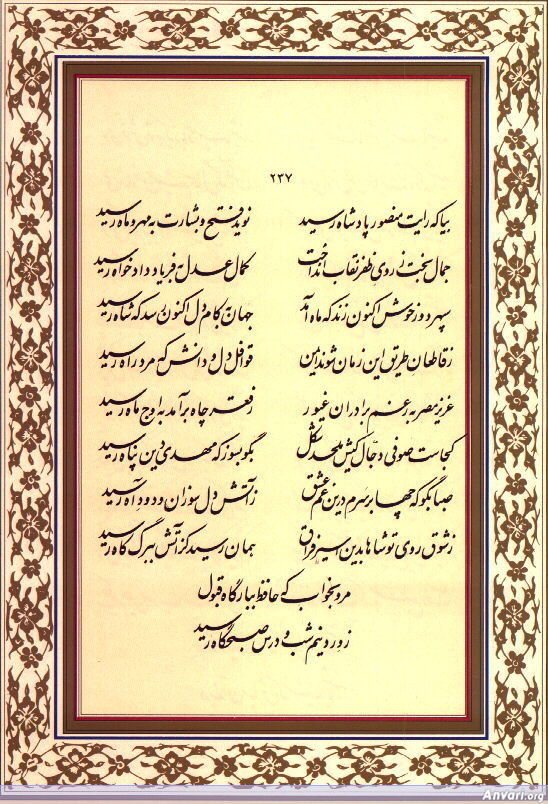 ۲۳۷
بیا که رایت منصور پادشاه رسید نوید فتح و بشارت به مهر و ماه رسید
جمال بخت ز روی ظفر نقاب انداخت کمال عدل به فریاد دادخواه رسید
سپهر دور خوش اکنون زند که ماه آمد جهان به کام دل اکنون رسد که شاه رسید
ز قاطعان طریق این زمان شوند ایمن قوافل دل و دانش که مرد راه رسید
عزیز مصر به رغم برادران غیور ز قعر چاه برآمد به اوج ماه رسید
کجاست صوفی دجال کیش ملحد شکل بگو بسوز که مهدی دین پناه رسید
صبا بگو که چها بر سرم درین غم عشق ز آتش دل سوزان و دود آه رسید
ز شوق روی تو شاها بدین اسیر فراق همان رسید کز آتش به برگ کاه رسید
مرو بخواب که حافظ ببارگاه قبول
ز ورد نیم شب و درس صبحگاه رسید
Anvari.org